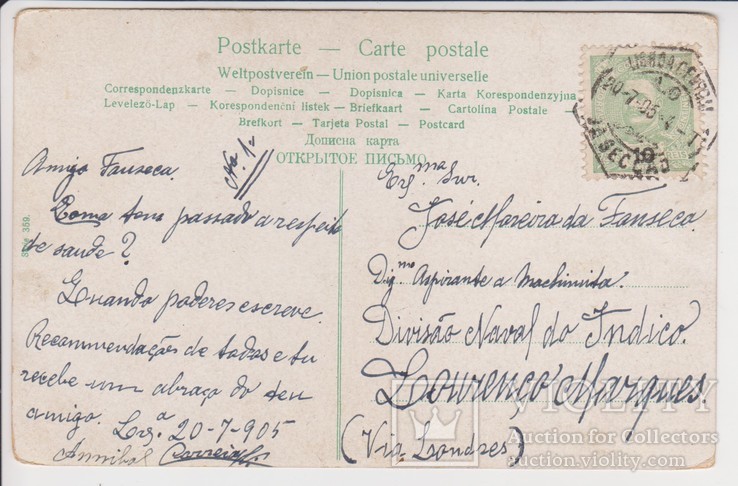 Postkarte — Carte postale
Weltpostverein — Union postale universelle
Correspondenzkarte — Dopisnice — Dopisnica — Karta Korespondenzyjna
Levelező-Lap — Korespondenční listek — Briefkaart — Cartolina Postale
Brefkort — Tarjeta Postal — Postcard
Дописна карта
ОТКРЫТОЕ ПИСЬМО
No. 1
Amigo Fonseca.
Como tens passado a respeito
de saude?
Quando poderes escreve.
Recommendações de todos e tu
recebe um abraço do teu
amigo. Lxª 20-7-905
Annibal Correia
369.
LISBOA CENTRAL
20-7-05
1ª SECÇÃO
10
REIS
Exmª Snr.
José Moreira da Fonseca.
Digmo Aspirante a Machinista.
Divisão Naval do Indico.
Lourenço Marques.
(Via Londres)
VIOLITY
Auction for Collectors
auction.violity.com